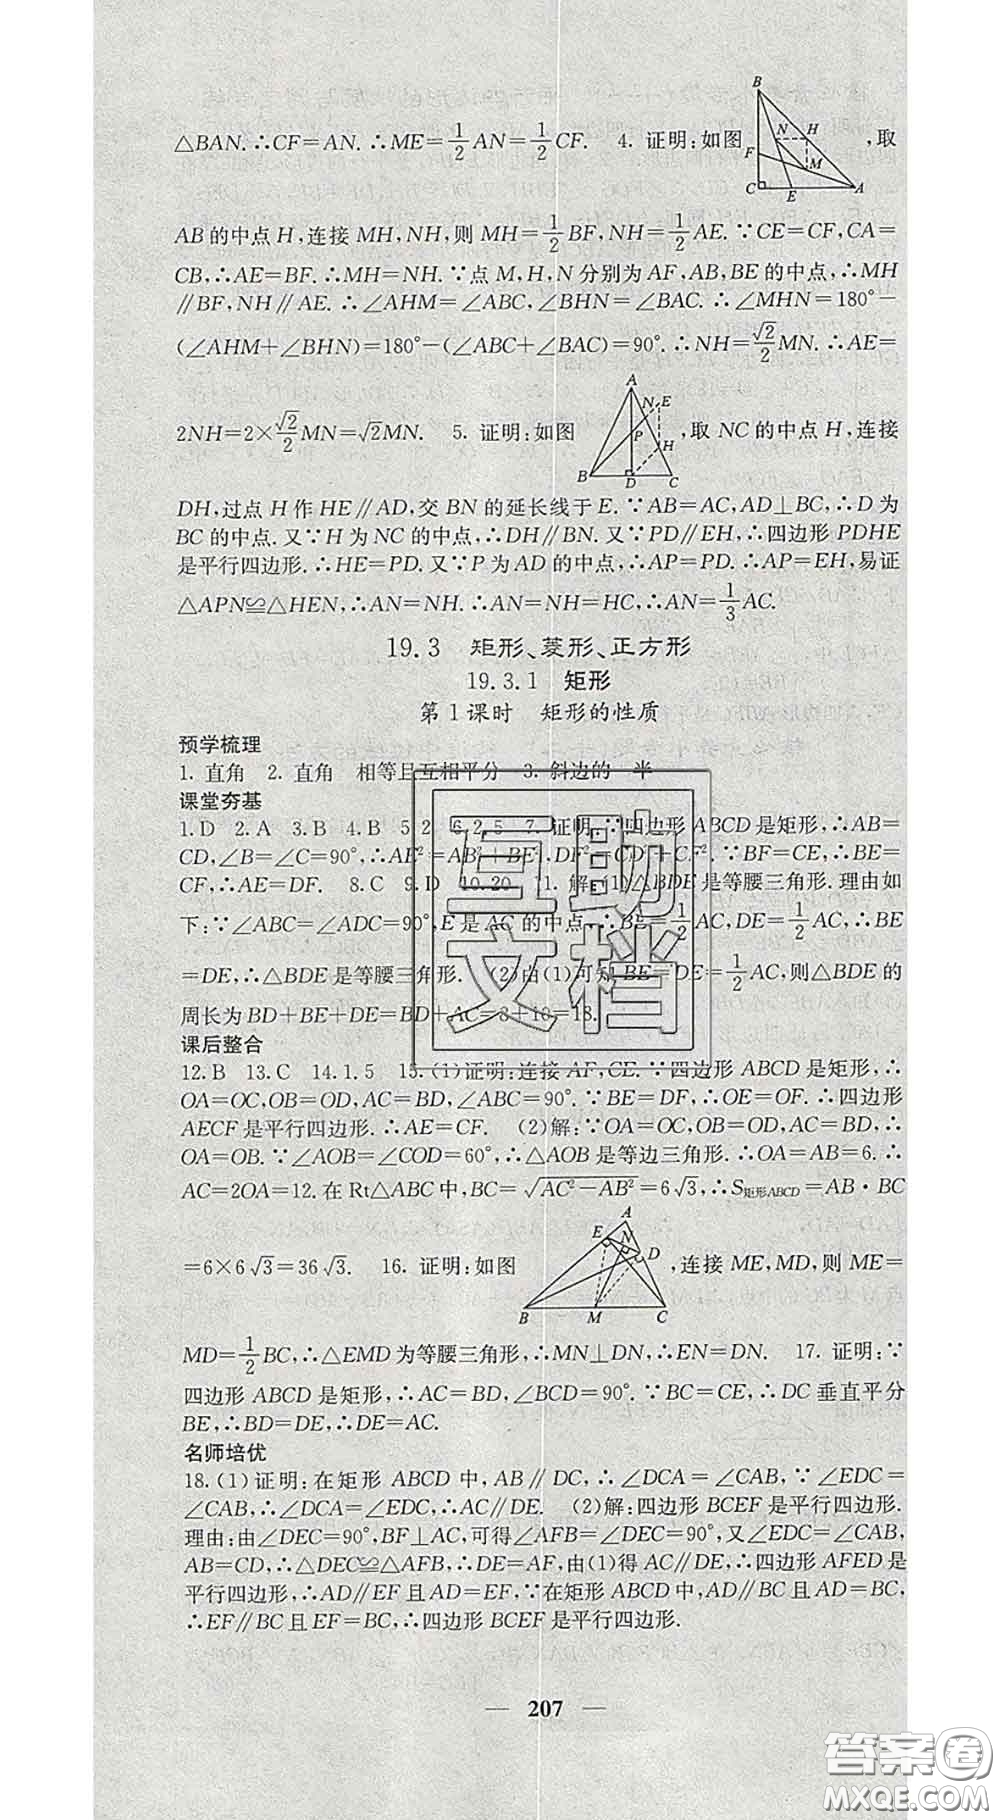 △BAN.∴CF=AN.∴ME=1/2AN=1/2CF. 4. 证明:如图 B N H F M C E A ,取
AB的中点H,连接MH,NH,则MH=1/2BF,NH=1/2AE.∵CE=CF,CA=
CB,∴AE=BF.∴MH=NH.∵点M,H,N分别为AF,AB,BE的中点,∴MH
∥BF,NH∥AE.∴∠AHM=∠ABC,∠BHN=∠BAC.∴∠MHN=180°-
(∠AHM+∠BHN)=180°-(∠ABC+∠BAC)=90°.∴NH=√2/2MN.∴AE=
2NH=2×√2/2MN=√2MN. 5. 证明:如图 A N E P H B D C ,取NC的中点H,连接
DH,过点H作HE∥AD,交BN的延长线于E.∵AB=AC,AD⊥BC,∴D为
BC的中点.又∵H为NC的中点,∴DH∥BN.又∵PD∥EH,∴四边形PDHE
是平行四边形.∴HE=PD.又∵P为AD的中点,∴AP=PD.∴AP=EH,易证
△APN≌△HEN,∴AN=NH.∴AN=NH=HC,∴AN=1/3AC.
19.3 矩形、菱形、正方形
19.3.1 矩形
第1课时 矩形的性质
预学梳理
1. 直角 2. 直角 相等且互相平分 3. 斜边的一半
课堂夯基
1.D 2.A 3.B 4.B 5.2 6.2.5 7. 证明:∵四边形ABCD是矩形,∴AB=
CD,∠B=∠C=90°,∴AE²=AB²+BE²,DF²=CD²+CF².∵BF=CE,∴BE=
CF,∴AE=DF. 8.C 9.D 10.20 11. 解:(1)△BDE是等腰三角形.理由如
下:∵∠ABC=∠ADC=90°,E是AC的中点,∴BE=1/2AC,DE=1/2AC,∴BE
=DE,∴△BDE是等腰三角形. (2)由(1)可知BE=DE=1/2AC,则△BDE的
周长为BD+BE+DE=BD+AC=8+10=18.
课后整合
12.B 13.C 14.1.5 15.(1)证明:连接AF,CE.∵四边形ABCD是矩形,∴
OA=OC,OB=OD,AC=BD,∠ABC=90°.∵BE=DF,∴OE=OF.∴四边形
AECF是平行四边形.∴AE=CF. (2)解:∵OA=OC,OB=OD,AC=BD,∴
OA=OB.∵∠AOB=∠COD=60°,∴△AOB是等边三角形.∴OA=AB=6.∴
AC=2OA=12.在Rt△ABC中,BC=√(AC²-AB²)=6√3,∴S矩形ABCD=AB·BC
=6×6√3=36√3. 16. 证明:如图 A E N D B M C ,连接ME,MD,则ME=
MD=1/2BC,∴△EMD为等腰三角形,∴MN⊥DN,∴EN=DN. 17. 证明:∵
四边形ABCD是矩形,∴AC=BD,∠BCD=90°.∵BC=CE,∴DC垂直平分
BE,∴BD=DE,∴DE=AC.
名师培优
18.(1)证明:在矩形ABCD中,AB∥DC,∴∠DCA=∠CAB,∵∠EDC=
∠CAB,∴∠DCA=∠EDC,∴AC∥DE. (2)解:四边形BCEF是平行四边形.
理由:由∠DEC=90°,BF⊥AC,可得∠AFB=∠DEC=90°,又∠EDC=∠CAB,
AB=CD,∴△DEC≌△AFB,∴DE=AF,由(1)得AC∥DE,∴四边形AFED是
平行四边形,∴AD∥EF且AD=EF,∵在矩形ABCD中,AD∥BC且AD=BC,
∴EF∥BC且EF=BC,∴四边形BCEF是平行四边形.
— 207 —
互助文档
答案圈
MXQE.COM